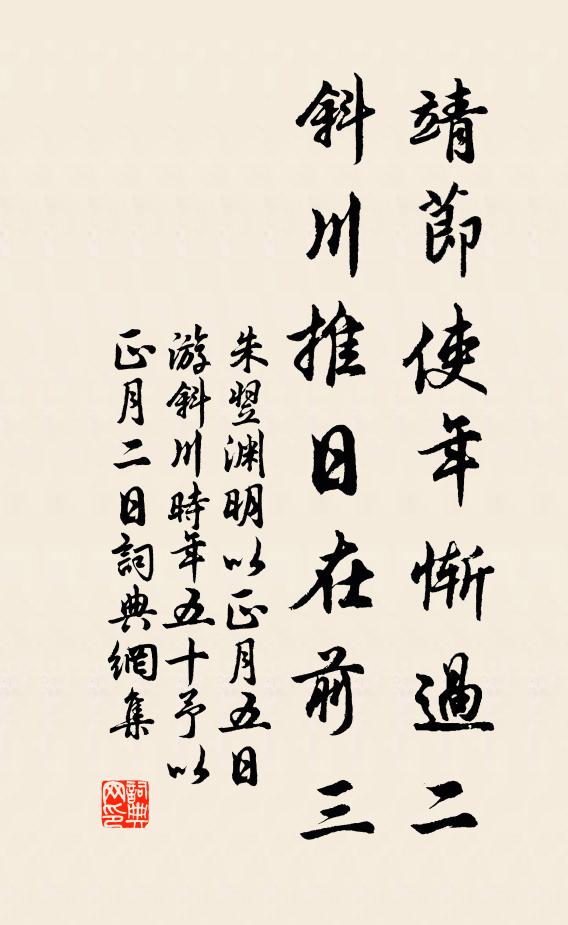 靖節使年慚過二
斜川推日在前三
朱翌淵明以正月五日
游斜川時年五十予以
正月二日詞典網集
詞典
网印